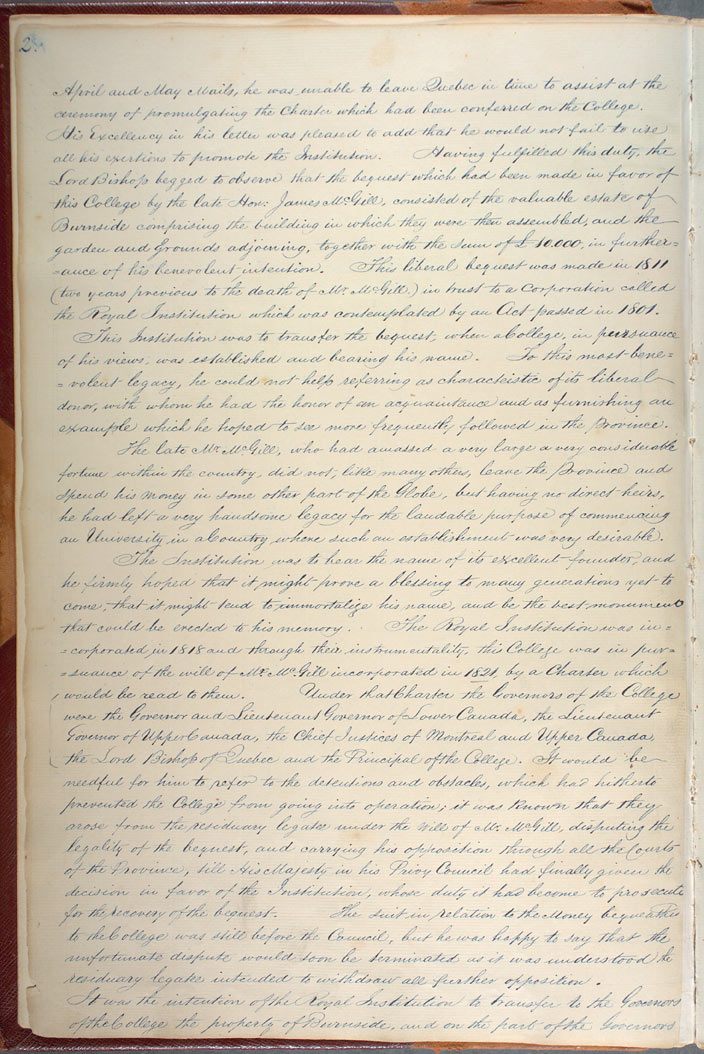 2
April and May Mails, he was unable to leave Quebec in time to assist at the
ceremony of promulgating the Charter which had been conferred on the College.
His Excellency in his letter was pleased to add that he would not fail to use
all his exertions to promote the Institution. Having fulfilled this duty, the
Lord Bishop begged to observe that the bequest which had been made in favor of
this College by the late Hon: James McGill, consisted of the valuable estate of
Burnside comprising the building in which they were then assembled, and the
garden and grounds adjoining, together with the sum of £10.000, in further=
=ance of his benevolent intention. This liberal bequest was made in 1811
(two years previous to the death of Mr. McGill.) in trust to a corporation called
the Royal Institution which was contemplated by an Act passed in 1801.
This Institution was to transfer the bequest, when a College, in persuance
of his views, was established and bearing his name. To this most bene=
=volent legacy, he could not help referring as characteistic of its liberal
donor, with whom he had the honor of an acquaintance and as furnishing an
example which he hoped to see more frequently followed in the Province.
The late Mr. McGill, who had amassed a very large a very considerable
fortune within the country, did not, like many others, leave the Province and
spend his money in some other part of the Globe, but having no direct heirs,
he had left a very handsome legacy for the laudable purpose of commencing
an University in a Country where such an establishment was very desirable.
The Institution, was to bear the name of its excellent founder, and
he firmly hoped that it might prove a blessing to many generations yet to
come, that it might tend to immortalize his name, and be the best monument
that could be erected to his memory. The Royal Institution was in=
=corporated in 1818 and through their instrumentality, this College was in pur=
=suance of the will of Mr. McGill incorporated in 1821, by a Charter which
would be read to them. Under that Charter the Governors of the College
were the Governor and Lieutenant Governor of Lower Canada, the Lieutenant
Governor of Upper Canada, the Chief Justices of Montreal and Upper Canada,
the Lord Bishop of Quebec and the Principal of the College. It would be
needful for him to refer to the detentions and obstacles, which had hitherto
prevented the College from going into operation; it was known that they
arose from the residuary legatee under the will of Mr. McGill, disputing the
legality of the bequest, and carrying his opposition through all the Courts
of the Province, till His Majesty in his Privy Council had finally given the
decision in favor of the Institution, whose duty it had become to prosecute
for the recovery of the bequest. The suit in relation to the Money
to the College was still before the Council, but he was happy to say that the
unfortunate dispute would soon be terminated as it was understood the
residuary legatee intended to withdraw all further opposition.
It was the intention of the Royal Institution to transfer to the Governors
of the College the property of Burnside, and on the part of the Governors